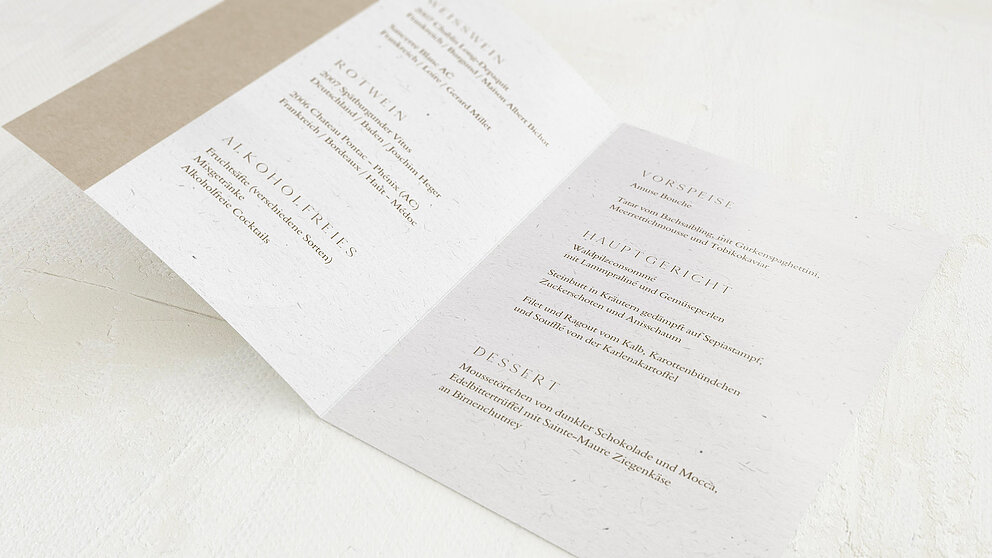 WEISSWEIN
2007 Chablis Long-Depaquit
Frankreich / Burgund / Maison Albert Bichot
Sancerre Blanc AC
Frankreich / Loire / Gerard Millet
ROTWEIN
2007 Spätburgunder Vitus
Deutschland / Baden / Joachim Heger
2006 Chateau Pontac - Phénix (AC)
Frankreich / Bordeaux / Haut - Médoc
ALKOHOLFREIES
Fruchtsäfte (verschiedene Sorten)
Mixgetränke
Alkoholfreie Cocktails
VORSPEISE
Amuse Bouche
Tatar vom Bachsaibling, mit Gurkenspaghettini,
Meerrettichmousse und Tobikokaviar
HAUPTGERICHT
Waldpilzconsommé
mit Lammpraliné und Gemüseperlen
Steinbutt in Kräutern gedämpft auf Sepiastampf,
Zuckerschoten und Anisschaum
Filet und Ragout vom Kalb, Karottenbündchen
und Soufflé von der Karlenakartoffel
DESSERT
Moussetörtchen von dunkler Schokolade und Mocca,
Edelbittertrüffel mit Sainte-Maure Ziegenkäse
an Birnenchutney